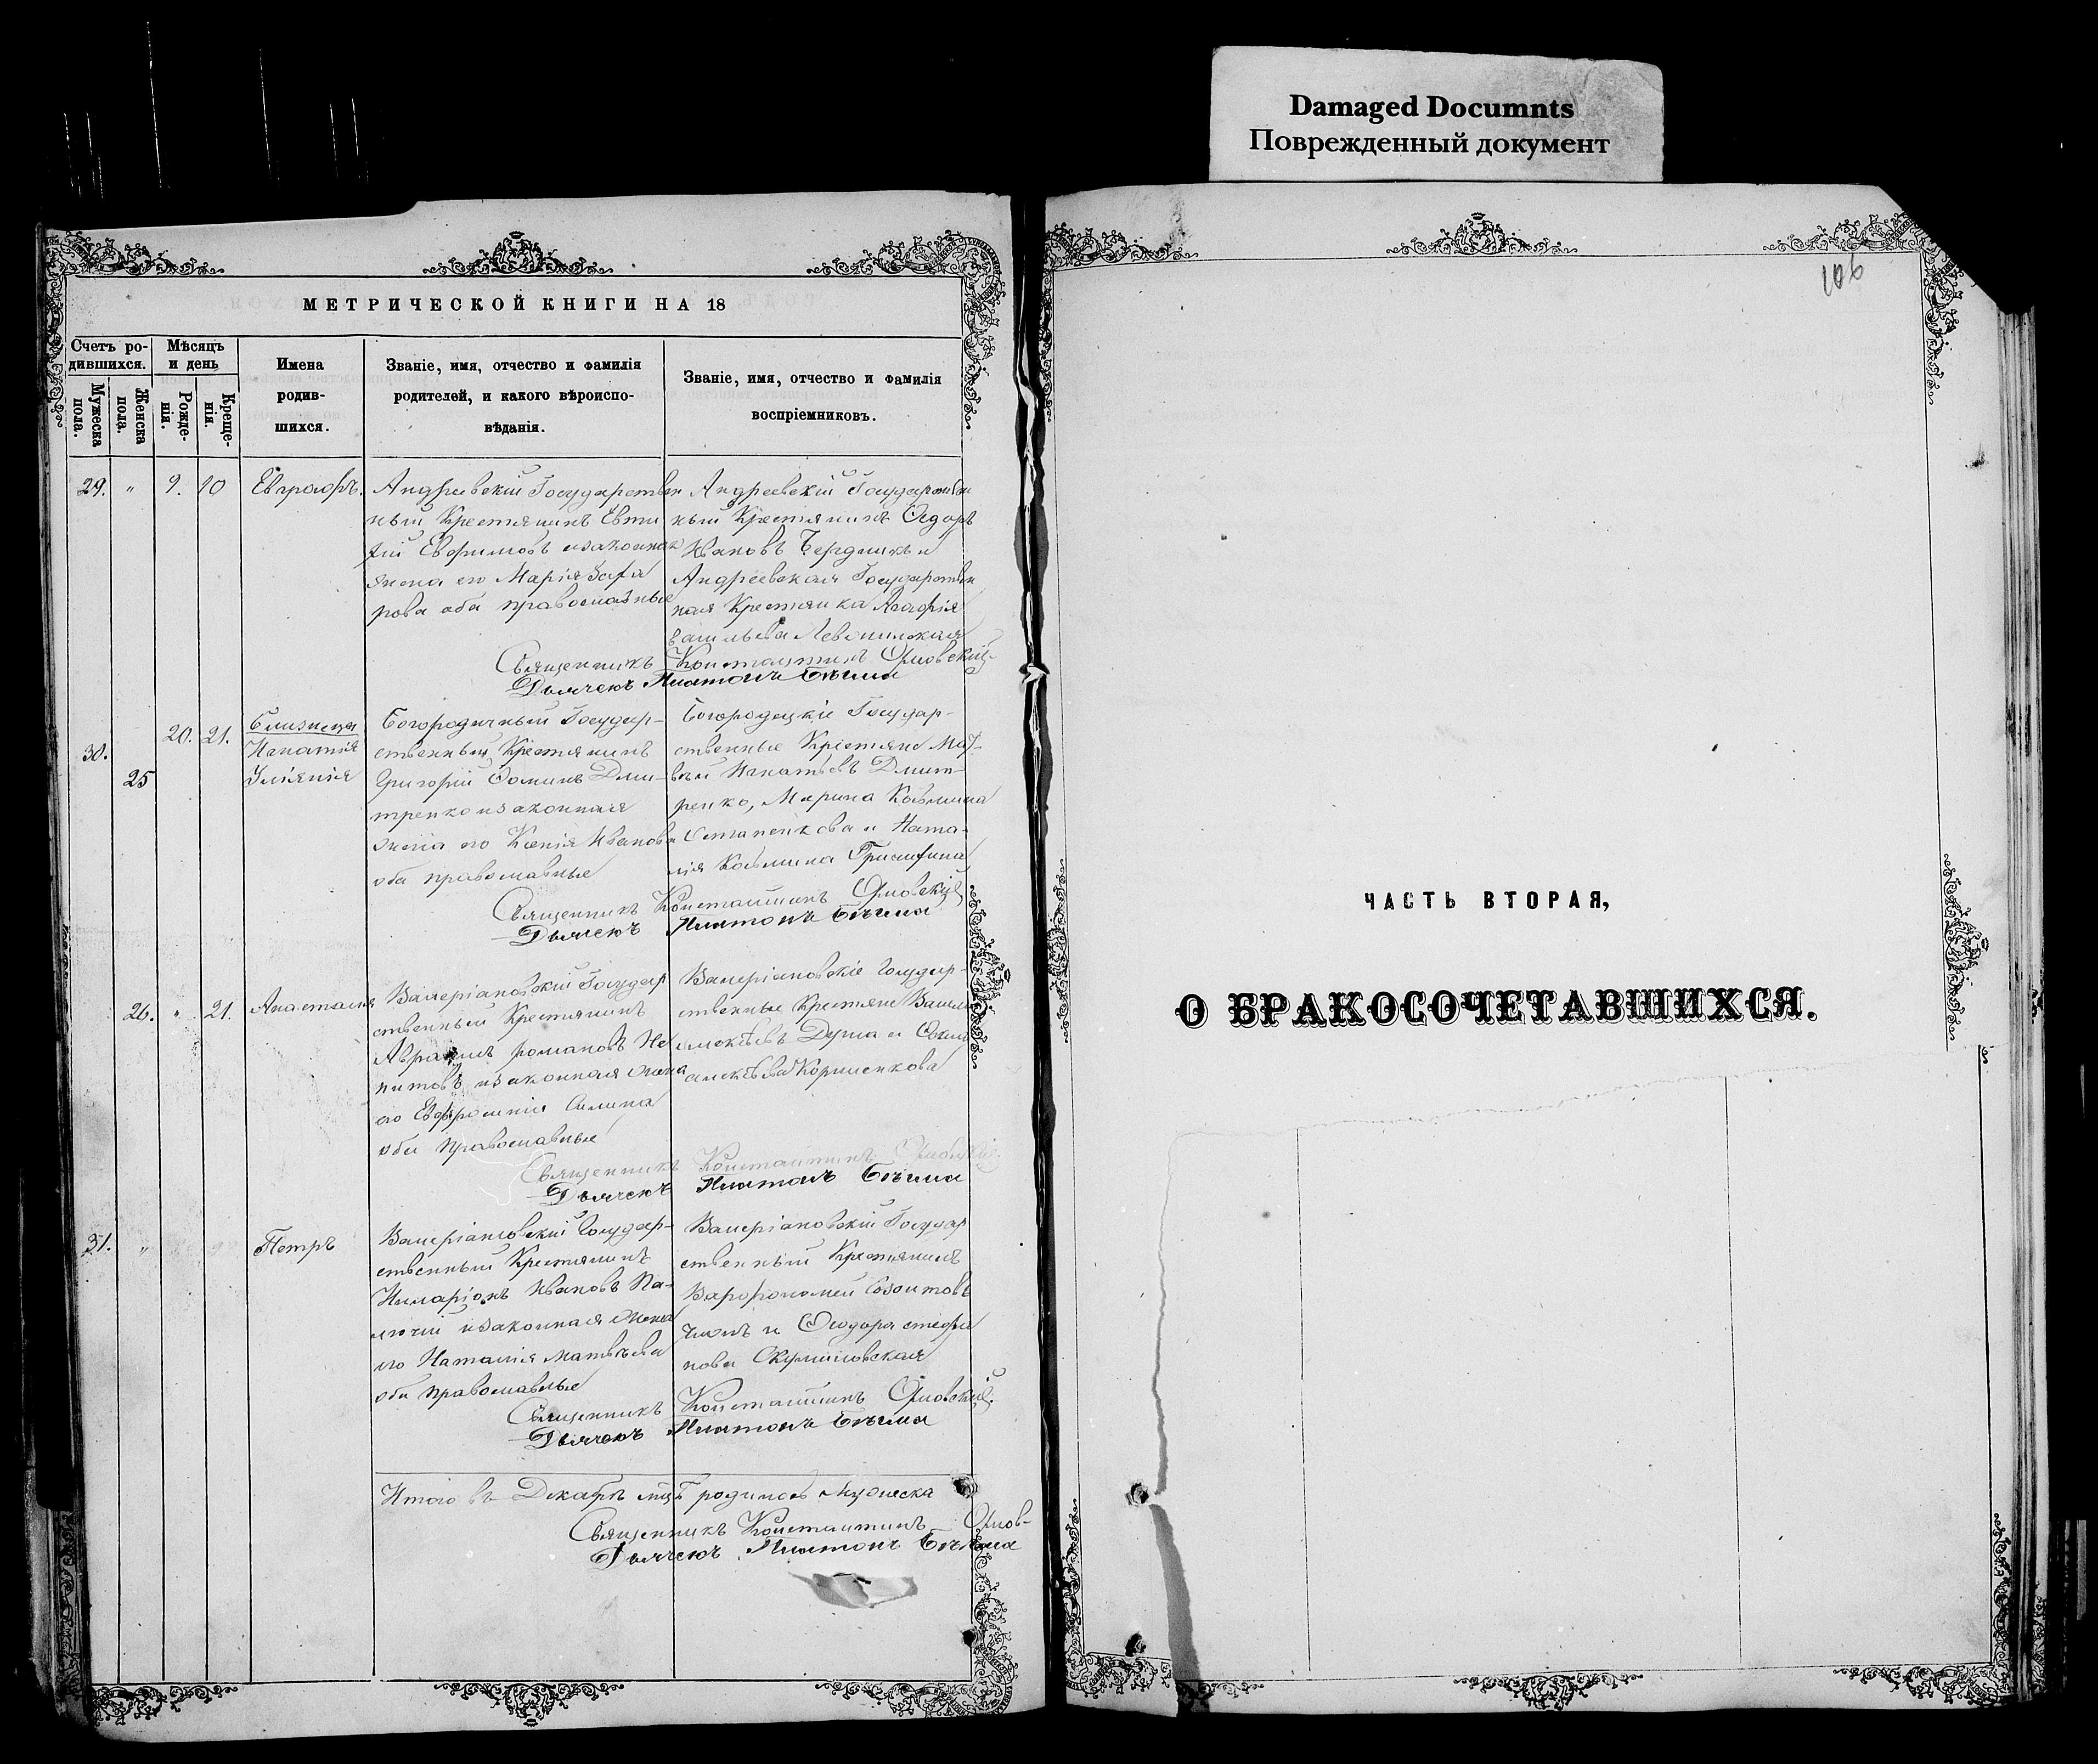 Damaged Documnts
Поврежденный документ
МЕТРИЧЕСКОЙ КНИГИ НА 18
Счетъ ро-
дившихся.
Мужеска
пола.
Женска
пола.
Мѣсяцъ
и день
Рожде-
нія.
Креще-
нія.
Имена
родив-
шихся.
Званіе, имя, отчество и фамилія
родителей, и какого вѣроиспо-
вѣданія.
Званіе, имя, отчество и фамилія
воспріемниковъ.
29. " 9. 10 Евграфъ.
Андреевскій Государствен
ный Крестянинъ Евти
хій Ефимовъ изаконная
жена его Марія Заха
рова оба православные
Андреевскій Государствен
ный Крестянинъ Ѳедоръ
Ивановъ Бердникъ и
Андреевская Государствен
ная Крестянка Агафія
Васильева
Священникъ Константинъ Орловскій
Дьячекъ Платонъ Бѣлина
30. 25 20. 21. Близнецы
Игнатій
Іуліянія
Богородичный Государ-
ственный Крестянинъ
Григорій Ѳоминъ Дми-
тренко изаконная
жена его Ксенія Иванова
оба православные
Богородецкіе Государ-
ственные Крестяне Мат-
вѣй Игнатьевъ Дмит-
ренко, Марина Козьмина
Остапенкова и Ната-
лія Козьмина
Священникъ Константинъ Орловскій
Дьячекъ Платонъ Бѣлина
26. " 21. Анастасія
Валеріановскій Государ
ственный Крестянинъ
Авраамъ Романовъ Не
питовъ изаконная жена
его Евфросинія Силина
оба православные
Валеріановскіе Государ-
ственные Крестяне Васил
Алексѣевъ и
Алексѣева Корниенкова
Священникъ Константинъ Орловскій
Дьячекъ Платонъ Бѣлина
31. " Петръ
Валеріановскій Государ-
ственный Крестянинъ
Иларіонъ Ивановъ Па-
лючій изаконная жена
его Наталія Матвѣева
оба православные
Валеріановскій Государ
ственный Крестянинъ
Варфоломей
и Ѳеодора Стефа
нова
Священникъ Константинъ Орловскій.
Дьячекъ Платонъ Бѣлина
Итого въ Декабрѣ мцѣ родилось Мужеска
Священникъ Константинъ Орлов-
Дьячекъ Платонъ Бѣлина
106
ЧАСТЬ ВТОРАЯ,
О БРАКОСОЧЕТАВШИХСЯ.